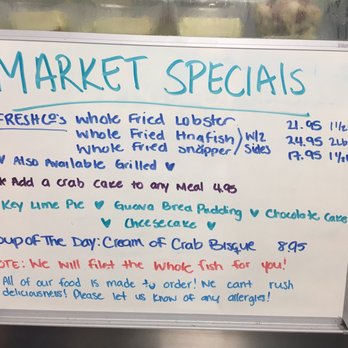 MARKET SPECIALS
FRESHCO's Whole Fried Lobster 21.95 1 1/2
Whole Fried Hogfish 24.95 2lb
Whole Fried Snapper 17.95 1 1/2
W/2 Sides
♥ Also Available Grilled ♥
Add a crab cake to any Meal 4.95
Key Lime Pie ♥ Guava Bread Pudding ♥ Chocolate Cake
♥ Cheesecake ♥
oup of The Day: Cream of Crab Bisque 8.95
OTE: We Will filet the Whole fish for you!
All of our food is made to order! We cant rush
deliciousness! Please let us know of any allergies!